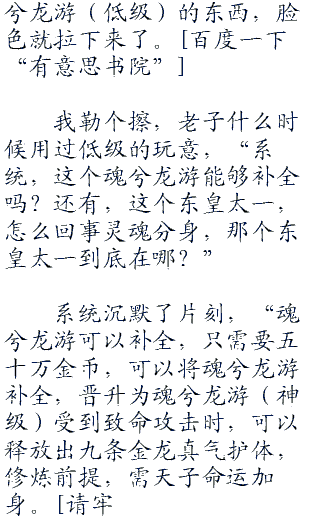 兮龙游（低级）的东西，脸
色就拉下来了。[百度一下
“有意思书院”]
我勒个擦，老子什么时
候用过低级的玩意，“系
统，这个魂兮龙游能够补全
吗？还有，这个东皇太一，
怎么回事灵魂分身，那个东
皇太一到底在哪？”
系统沉默了片刻，“魂
兮龙游可以补全，只需要五
十万金币，可以将魂兮龙游
补全，晋升为魂兮龙游（神
级）受到致命攻击时，可以
释放出九条金龙真气护体，
修炼前提，需天子命运加
身。[请牢